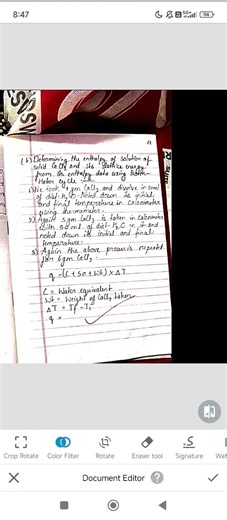 8:47
56
(b) Determining the enthalpy of solution of
solid CaCl2 and its lattice energy
from its enthalpy data using Born-
Haber cycle.
1) We took 4 gm CaCl2 and dissolve in 50ml
of dist. H2O. Noted down its initial
and final temperature in calorimeter
using thermometer.
2) Again 5 gm CaCl2 is taken in calorimeter
with 50 ml of dist. H2O in it and
noted down its initial and final
temperature.
3) Again the above process is repeated
for 6 gm CaCl2
q = (C + 50 + Wt) × ΔT
C = Water equivalent
Wt = Weight of CaCl2 taken
ΔT = Tf - Ti
q =
Crop Rotate
Color Filter
Rotate
Eraser tool
Signature
Wat
Document Editor